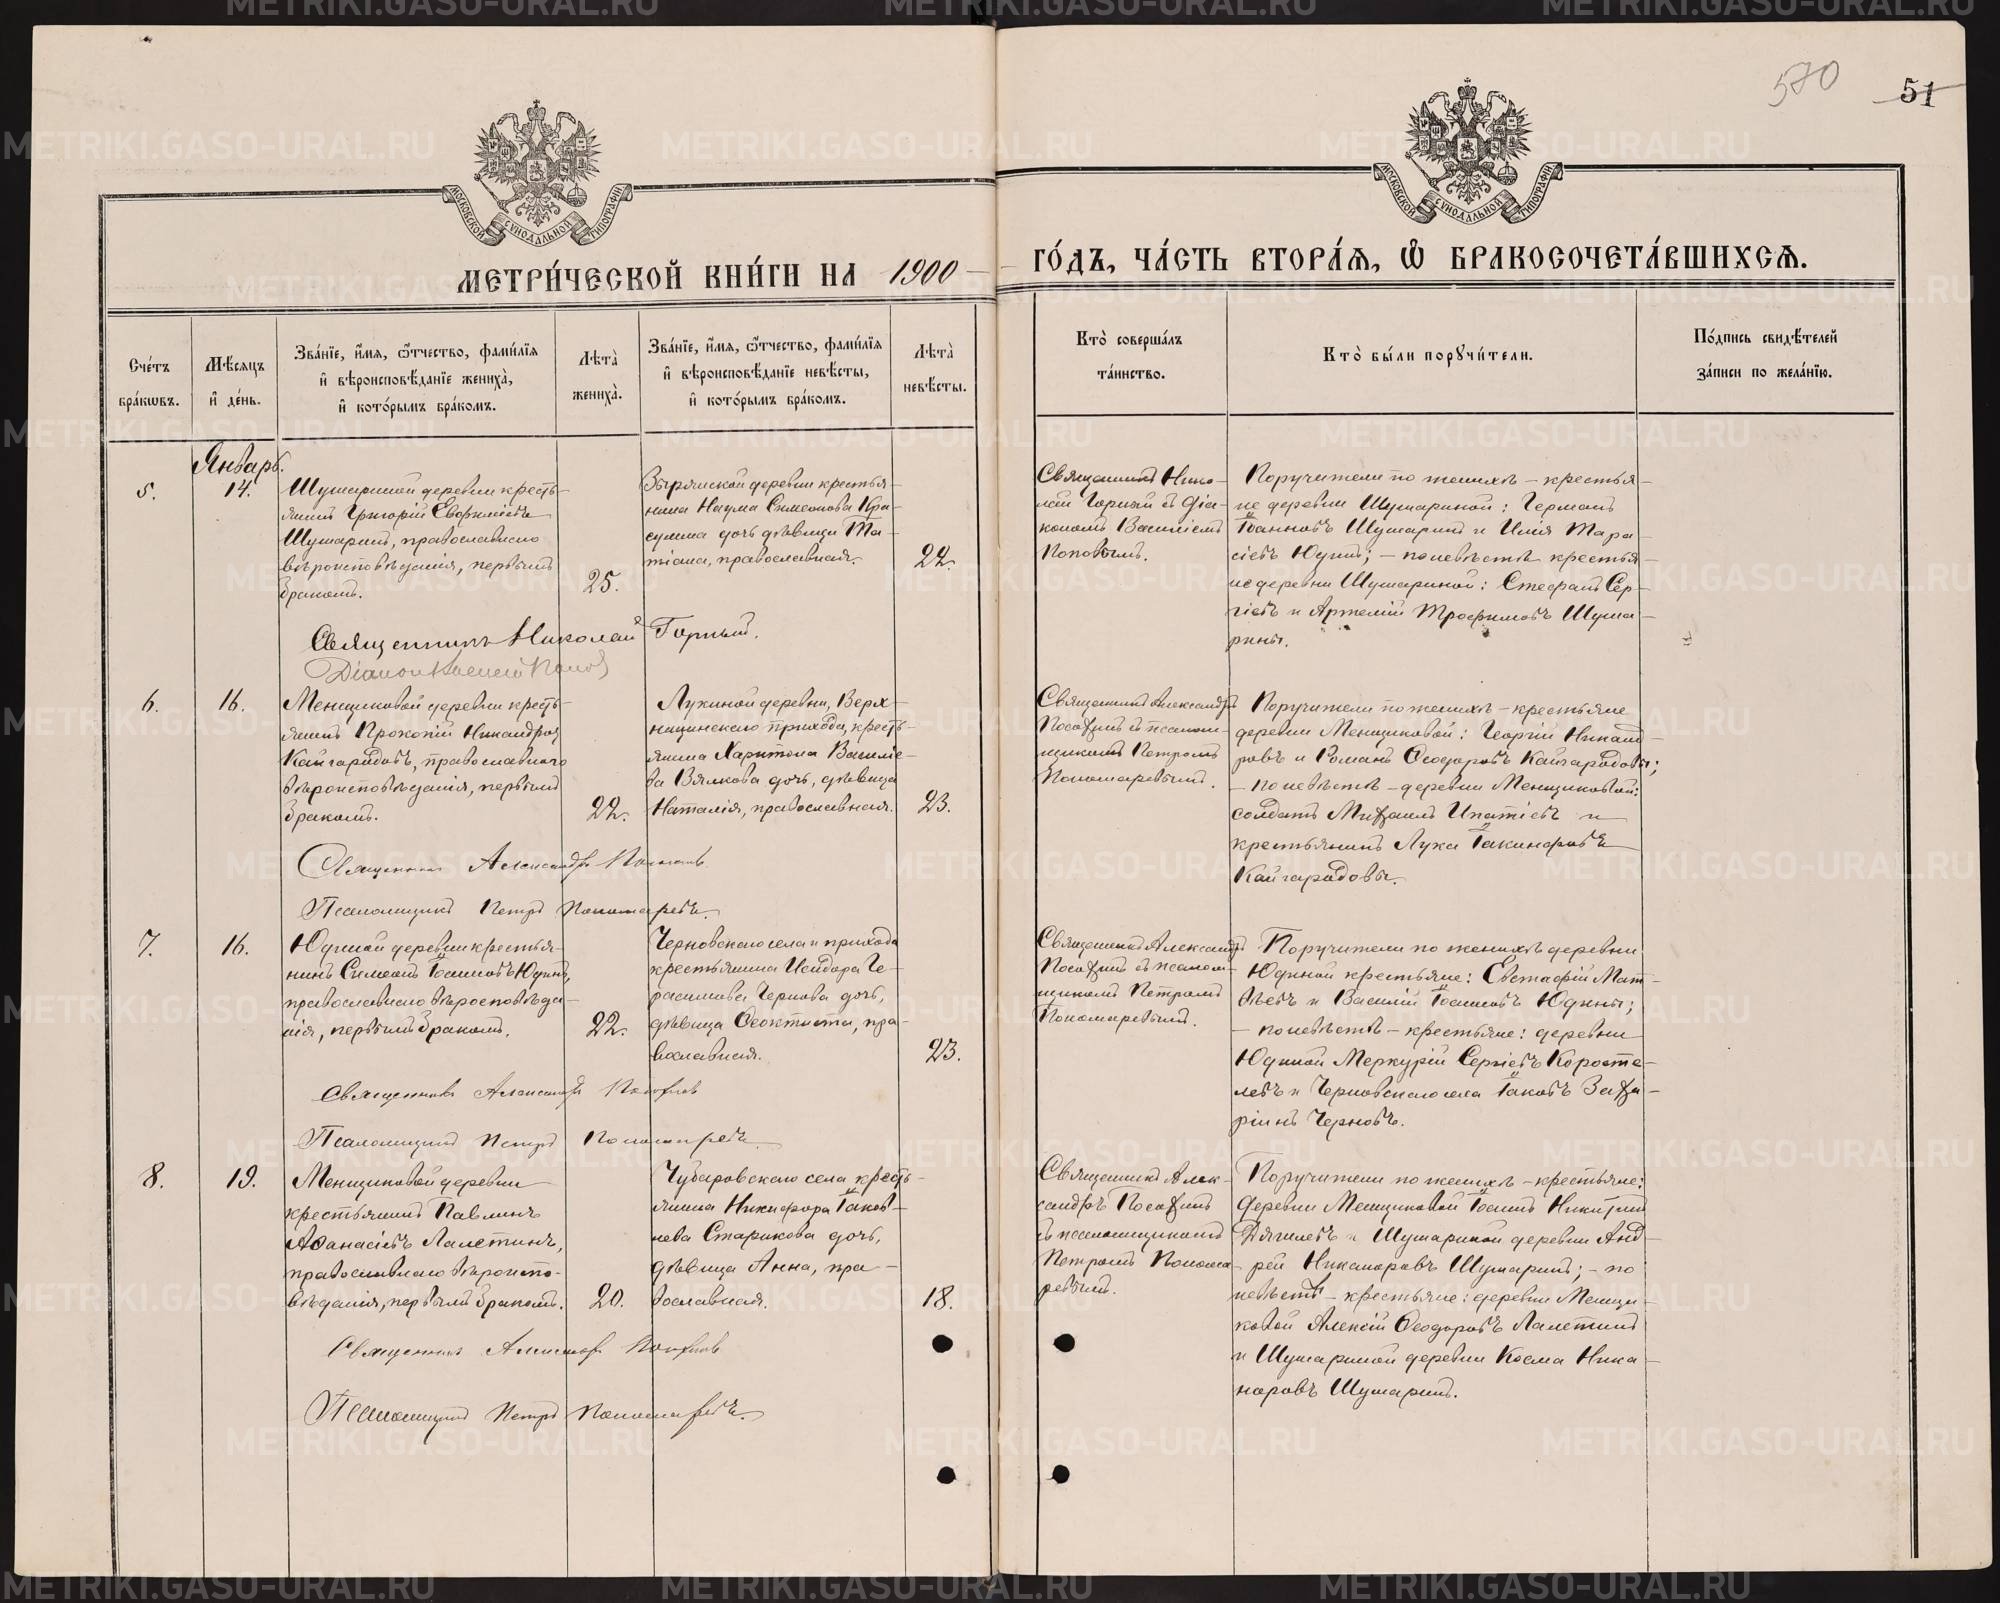 570
51
МОСКОВСКОЙ СѴНОДАЛЬНОЙ ТИПОГРАФІИ
МОСКОВСКОЙ СѴНОДАЛЬНОЙ ТИПОГРАФІИ
МЕТРИ́ЧЕСКОЙ КНИ́ГИ НА 1900 ГО́ДЪ, ЧА́СТЬ ВТОРА́Ѧ, Ѡ҆ БРАКОСОЧЕТА́ВШИХСѦ.
Сче́тъ
бра́кѡвъ.
Мѣ́сѧцъ
и҆ де́нь.
Зва́нїе, и҆́мѧ, ѻ҆́тчество, фами́лїѧ
и҆ вѣроисповѣ́данїе жениха̀,
и҆ кото́рымъ бра́комъ.
Лѣта̀
жениха̀.
Зва́нїе, и҆́мѧ, ѻ҆́тчество, фами́лїѧ
и҆ вѣроисповѣ́данїе невѣ́сты,
и҆ кото́рымъ бра́комъ.
Лѣта̀
невѣ́сты.
Кто̀ соверша́лъ
та́инство.
Кто̀ бы́ли порꙋчи́тели.
По́дпись свидѣ́телей
за́писи по жела́нїю.
Январь.
5.
14.
Шушариной деревни кресть-
янинъ Григорій Евфиміевъ
Шушаринъ, православнаго
вѣроисповѣданія, первымъ
бракомъ.
25.
Зырянской деревни крестья-
нина Наума Симеонова Кра-
сулина дочь дѣвица Та-
тіана, православная.
24.
Священникъ Нико-
лай Горный съ діа-
кономъ Василіемъ
Поповымъ.
Поручители по женихѣ – крестья-
не деревни Шушариной: Германъ
Іоанновъ Шушаринъ и Илія Тара-
сіевъ Юдинъ; – по невѣстѣ крестья-
не деревни Шушариной: Стефанъ Сер-
гіевъ и Артемій Трофимовъ Шуша-
рины.
Священникъ Николай Горный.
Діаконъ Василій Поповъ
6.
16.
Менщиковой деревни кресть-
янинъ Прокопій Никандровъ
Кайгородовъ, православнаго
вѣроисповѣданія, первымъ
бракомъ.
22.
Лукиной деревни, Верх-
ницинскаго прихода, кресть-
янина Харитона Василіе-
ва Вялкова дочь, дѣвица
Наталія, православная.
23.
Священникъ Александръ
Посохинъ съ псалом-
щикомъ Петромъ
Пономаревымъ.
Поручители по женихѣ – крестьяне
деревни Менщиковой: Георгій Никанд-
ровъ и Романъ Ѳеодоровъ Кайгородовы;
– по невѣстѣ – деревни Менщиковой:
солдатъ Михаилъ Ипатіевъ и
крестьянинъ Лука Іакинфовъ
Кайгородовы.
Священникъ Александръ Посохинъ
Псаломщикъ Петръ Пономаревъ.
7.
16.
Юдиной деревни крестья-
нинъ Симеонъ Іоанновъ Юдинъ,
православнаго вѣроисповѣда-
нія, первымъ бракомъ.
22.
Черновскаго села и прихода
крестьянина Исидора Ге-
расимова Чернова дочь,
дѣвица Ѳеоктиста, пра-
вославная.
23.
Священникъ Александръ
Посохинъ съ псалом-
щикомъ Петромъ
Пономаревымъ.
Поручители по женихѣ деревни
Юдиной крестьяне: Евстафій Мат-
вѣевъ и Василій Іоанновъ Юдины;
– по невѣстѣ – крестьяне: деревни
Юдиной Меркурій Сергіевъ Коросте-
левъ и Черновскаго села Іаковъ Заха-
ріинъ Черновъ.
Священникъ Александръ Посохинъ
Псаломщикъ Петръ Пономаревъ.
8.
19.
Менщиковой деревни
крестьянинъ Павлинъ
Аѳанасіевъ Лалетинъ,
православнаго вѣроиспо-
вѣданія, первымъ бракомъ.
20.
Чубаровскаго села кресть-
янина Никифора Іаков-
лева Старикова дочь,
дѣвица Анна, пра-
вославная.
18.
Священникъ Алек-
сандръ Посохинъ
съ псаломщикомъ
Петромъ Понома-
ревымъ.
Поручители по женихѣ – крестьяне:
деревни Менщиковой Іоаннъ Никитинъ
Дягилевъ и Шушариной деревни Анд-
рей Никаноровъ Шушаринъ; – по
невѣстѣ – крестьяне: деревни Менщи-
ковой Алексій Ѳеодоровъ Лалетинъ
и Шушариной деревни Косма Ника-
норовъ Шушаринъ.
Священникъ Александръ Посохинъ
Псаломщикъ Петръ Пономаревъ.
METRIKI.GASO-URAL.RU